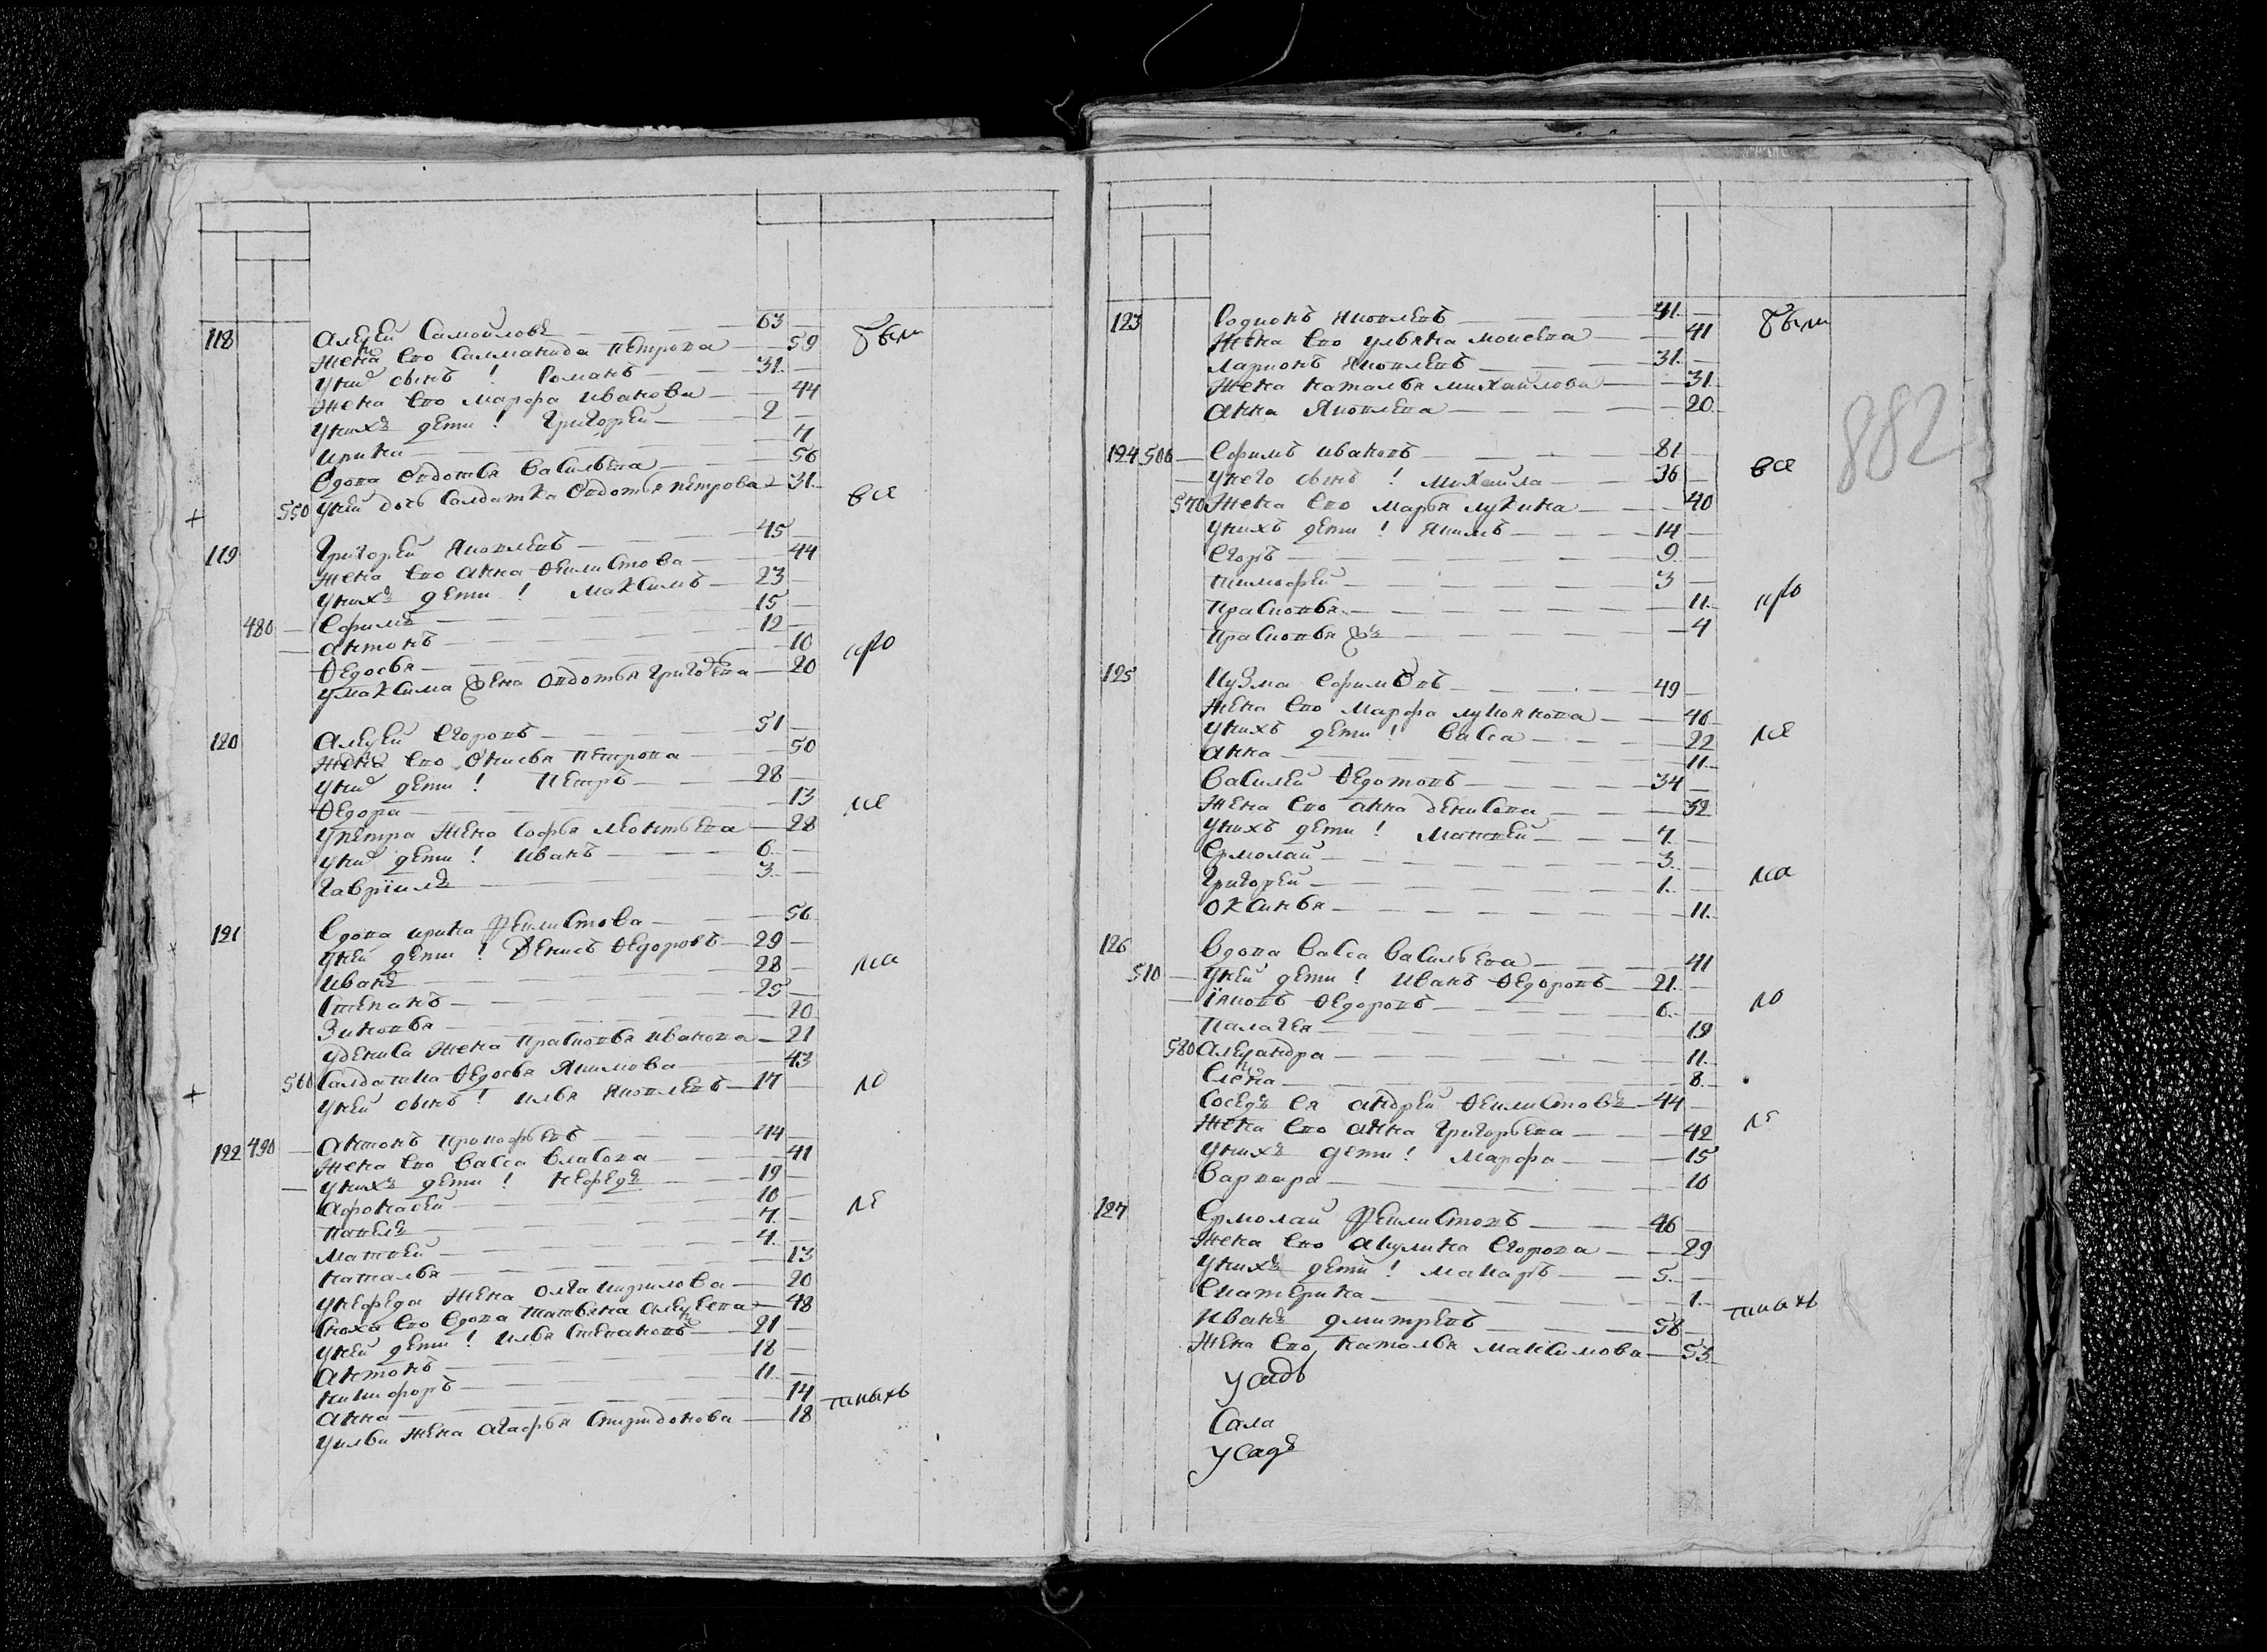 118 Алеѯей Самойловъ 63
Жена ево Саламанида Петрова 59 были
У них сынъ ! Романъ 31
Жена ево Марфа Иванова 44
У нихъ дети ! Григорей 2
Ирина 7
Вдова Овдотья Васильева 56
550 У ней дочь солдатка Овдотья Петрова 31 все
119 Григорей Яковлевъ 45
Жена ево Анна Феилистова 44
У нихъ дети ! Максимъ 23
480 Ефимъ 15
Антонъ 12
Федосья 10 про
У Максима жена Овдотья Григорева 20
120 Алеѯей Егоровъ 51
Жена ево Анисья Петрова 50
У них дети ! Петръ 28
Федора 13 ис
У Петра жена Софья Леонтьева 28
У них дети ! Иванъ 6
Гаврїилъ 3
121 Вдова Ирина Феилистова 56
У ней дети ! Денисъ Федоровъ 29
Иванъ 28
Степанъ 25
Зиновья 20
У Дениса жена Прасковья Иванова 21
560 Салдатка Федосья Якимова 43
У ней сынъ ! Илья Яковлевъ 17 ло
122 490 Антонъ Прокофьевъ 44
Жена ево Васса Власова 41
У нихъ дети ! Нефедъ 19
Афонасей 10 ле
Павелъ 7
Матвей 4
Наталья 13
У Нефеда жена Олга Кирилова 20
Сноха ево вдова Татьяна Алеѯеева 48
У ней дети ! Илья Степановъ 21
Антонъ 18
Никифоръ 11
Анна 14
У Ильи жена Агафья Спиридонова 18
123 Родионъ Яковлевъ 41 были
Жена ево Ульяна Моисева 41
Ларионъ Яковлевъ 31
Жена Наталья Михайлова 31
Анна Яковлева 20
882
124 506 Ефимъ Ивановъ 81
У него сынъ ! Михаила 36 все
570 Жена ево Марья Лукина 40
У нихъ дети ! Якимъ 14
Егоръ 9
Тимофей 3
Прасковья 11 про
Прасковья ж 4
125 Кузма Ефимовъ 49
Жена ево Марфа Лукоянова 46
У нихъ дети ! Васса 22
Анна 11
Василей Федотовъ 34
Жена ево Анна Денисова 32
У нихъ дети ! Матвей 7
Ермолай 3
Григорей 1
Оксинья 11
126 Вдова Васса Васильева 41
510 У ней дети ! Иванъ Федоровъ 21
Їяковъ Федоровъ 6 ло
Палагея 19
580 Алеѯандра 11
Елена 8
Соседъ ея Андрей Феилистовъ 44
Жена ево Анна Григорьева 42 ле
У нихъ дети ! Марфа 15
Варвара 10
127 Ермолай Феилистовъ 46
Жена ево Акулина Егорова 29
У нихъ дети ! Макаръ 5
Екатерина 1
Иванъ Дмитревъ 58
Жена ево Наталья Максимова 53
Усадъ
Сала
Усадъ